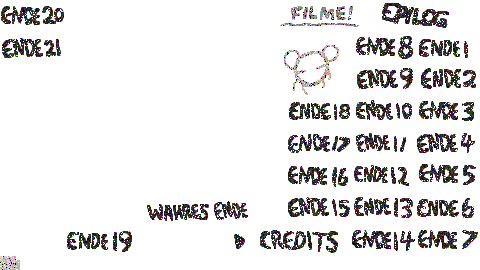 ENDE 20 FILME! EPILOG
ENDE 21 ENDE 8 ENDE 1
ENDE 9 ENDE 2
ENDE 18 ENDE 10 ENDE 3
ENDE 17 ENDE 11 ENDE 4
ENDE 16 ENDE 12 ENDE 5
WAHRES ENDE ENDE 15 ENDE 13 ENDE 6
ENDE 19 CREDITS ENDE 14 ENDE 7